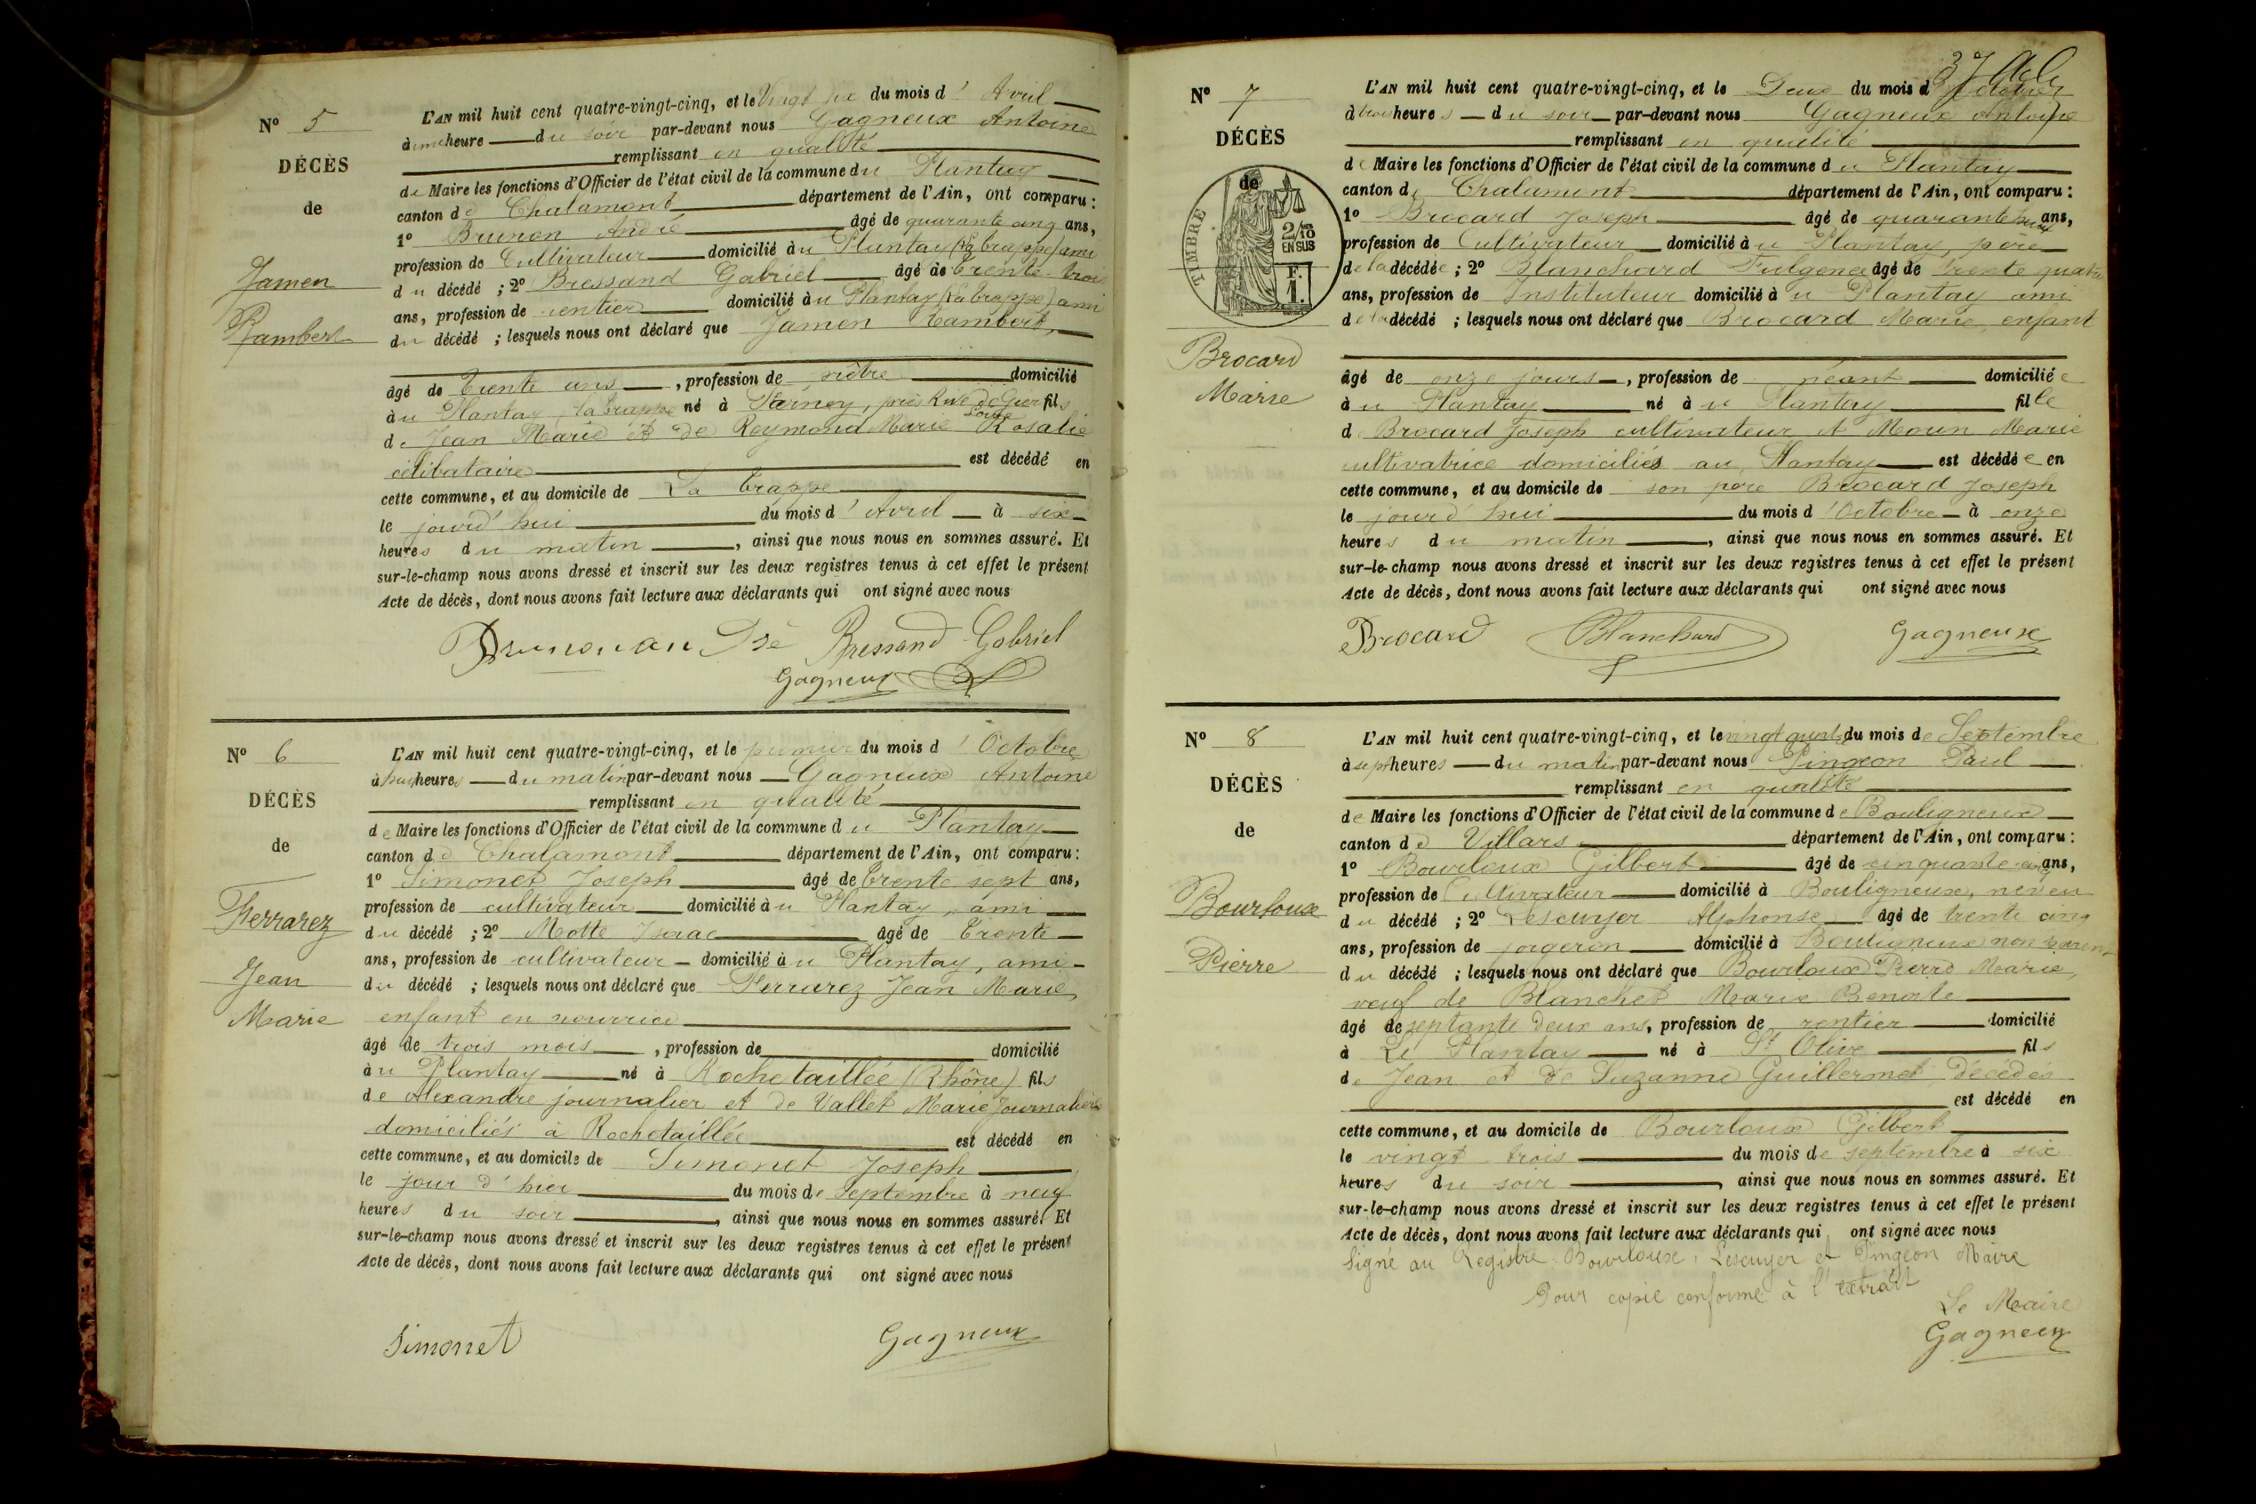 N° 5
DÉCÈS
de
Jamen
Rambert
L'AN mil huit cent quatre-vingt-cinq, et le Vingt six du mois d'Avril
à une heure du soir par-devant nous Gagneux Antoine
remplissant en qualité
de Maire les fonctions d'Officier de l'état civil de la commune du Plantay
canton de Chalamont département de l'Ain, ont comparu :
1° Brunon André âgé de quarante cinq ans,
profession de Cultivateur domicilié au Plantay (La trappe) ami
du décédé ; 2° Bressand Gabriel âgé de trente trois
ans, profession de rentier domicilié au Plantay (La trappe) ami
du décédé ; lesquels nous ont déclaré que Jamen Rambert,
âgé de trente ans, profession de domicilié
au Plantay, la trappe né à près Rive de Gier fils
Loire
de Jean Marie et de Reymond Marie Rosalie
célibataire est décédé en
cette commune, et au domicile de La trappe
le jourd'hui du mois d'Avril à six
heures du matin, ainsi que nous nous en sommes assuré. Et
sur-le-champ nous avons dressé et inscrit sur les deux registres tenus à cet effet le présent
Acte de décès, dont nous avons fait lecture aux déclarants qui ont signé avec nous
Bressand Gabriel
Gagneux
N° 6
DÉCÈS
de
Ferrarez
Jean
Marie
L'AN mil huit cent quatre-vingt-cinq, et le premier du mois d'Octobre
à huit heures du matin par-devant nous Gagneux Antoine
remplissant en qualité
de Maire les fonctions d'Officier de l'état civil de la commune du Plantay
canton de Chalamont département de l'Ain, ont comparu :
1° Simonet Joseph âgé de trente sept ans,
profession de cultivateur domicilié au Plantay, ami
du décédé ; 2° Motte Isaac âgé de trente
ans, profession de cultivateur domicilié au Plantay, ami
du décédé ; lesquels nous ont déclaré que Ferrarez Jean Marie,
enfant en nourrice
âgé de trois mois, profession de domicilié
au Plantay né à Rochetaillée (Rhône) fils
de Alexandre journalier et de Vallet Marie Journalière
domiciliés à Rochetaillée est décédé en
cette commune, et au domicile de Simonet Joseph
le jour d'hier du mois de Septembre à neuf
heures du soir, ainsi que nous nous en sommes assuré. Et
sur-le-champ nous avons dressé et inscrit sur les deux registres tenus à cet effet le présent
Acte de décès, dont nous avons fait lecture aux déclarants qui ont signé avec nous
Simonet Gagneux
37
N° 7
DÉCÈS
de
TIMBRE
2/10
EN SUS
F.
1.
Brocard
Marie
L'AN mil huit cent quatre-vingt-cinq, et le Deux du mois d'Octobre
à trois heures du soir par-devant nous Gagneux Antoine
remplissant en qualité
de Maire les fonctions d'Officier de l'état civil de la commune du Plantay
canton de Chalamont département de l'Ain, ont comparu :
1° Brocard Joseph âgé de quarante ans,
profession de Cultivateur domicilié au Plantay père
de la décédée ; 2° Blanchard Fulgence âgé de trente quatre
ans, profession de Instituteur domicilié au Plantay ami
de la décédé ; lesquels nous ont déclaré que Brocard Marie, enfant
âgé de onze jours, profession de néant domiciliée
au Plantay né au Plantay fille
d Brocard Joseph cultivateur et Moun Marie
cultivatrice domiciliés au Plantay est décédée en
cette commune, et au domicile de son père Brocard Joseph
le jourd'hui du mois d'Octobre à onze
heures du matin, ainsi que nous nous en sommes assuré. Et
sur-le-champ nous avons dressé et inscrit sur les deux registres tenus à cet effet le présent
Acte de décès, dont nous avons fait lecture aux déclarants qui ont signé avec nous
Brocard Blanchard Gagneux
N° 8
DÉCÈS
de
Bourloux
Pierre
L'AN mil huit cent quatre-vingt-cinq, et le vingt quatre du mois de Septembre
à sept heures du matin par-devant nous Pingeon Paul
remplissant en qualité
de Maire les fonctions d'Officier de l'état civil de la commune de Bouligneux
canton de Villars département de l'Ain, ont comparu :
1° Bourloux Gilbert âgé de cinquante cinq ans,
profession de Cultivateur domicilié à Bouligneux, neveu
du décédé ; 2° Lescuyer Alphonse âgé de trente cinq
ans, profession de forgeron domicilié à Bouligneux non parent
du décédé ; lesquels nous ont déclaré que Bourloux Pierre Marie,
veuf de Blanchet Marie Benoite
âgé de septante deux ans, profession de rentier domicilié
à Le Plantay né à St Olive fils
de Jean et de Suzanne Guillermet décédés
est décédé en
cette commune, et au domicile de Bourloux Gilbert
le vingt trois du mois de septembre à six
heures du soir, ainsi que nous nous en sommes assuré. Et
sur-le-champ nous avons dressé et inscrit sur les deux registres tenus à cet effet le présent
Acte de décès, dont nous avons fait lecture aux déclarants qui ont signé avec nous
Signé au Registre Bourloux, Lescuyer et Pingeon Maire
Pour copie conforme à l'extrait
Le Maire
Gagneux